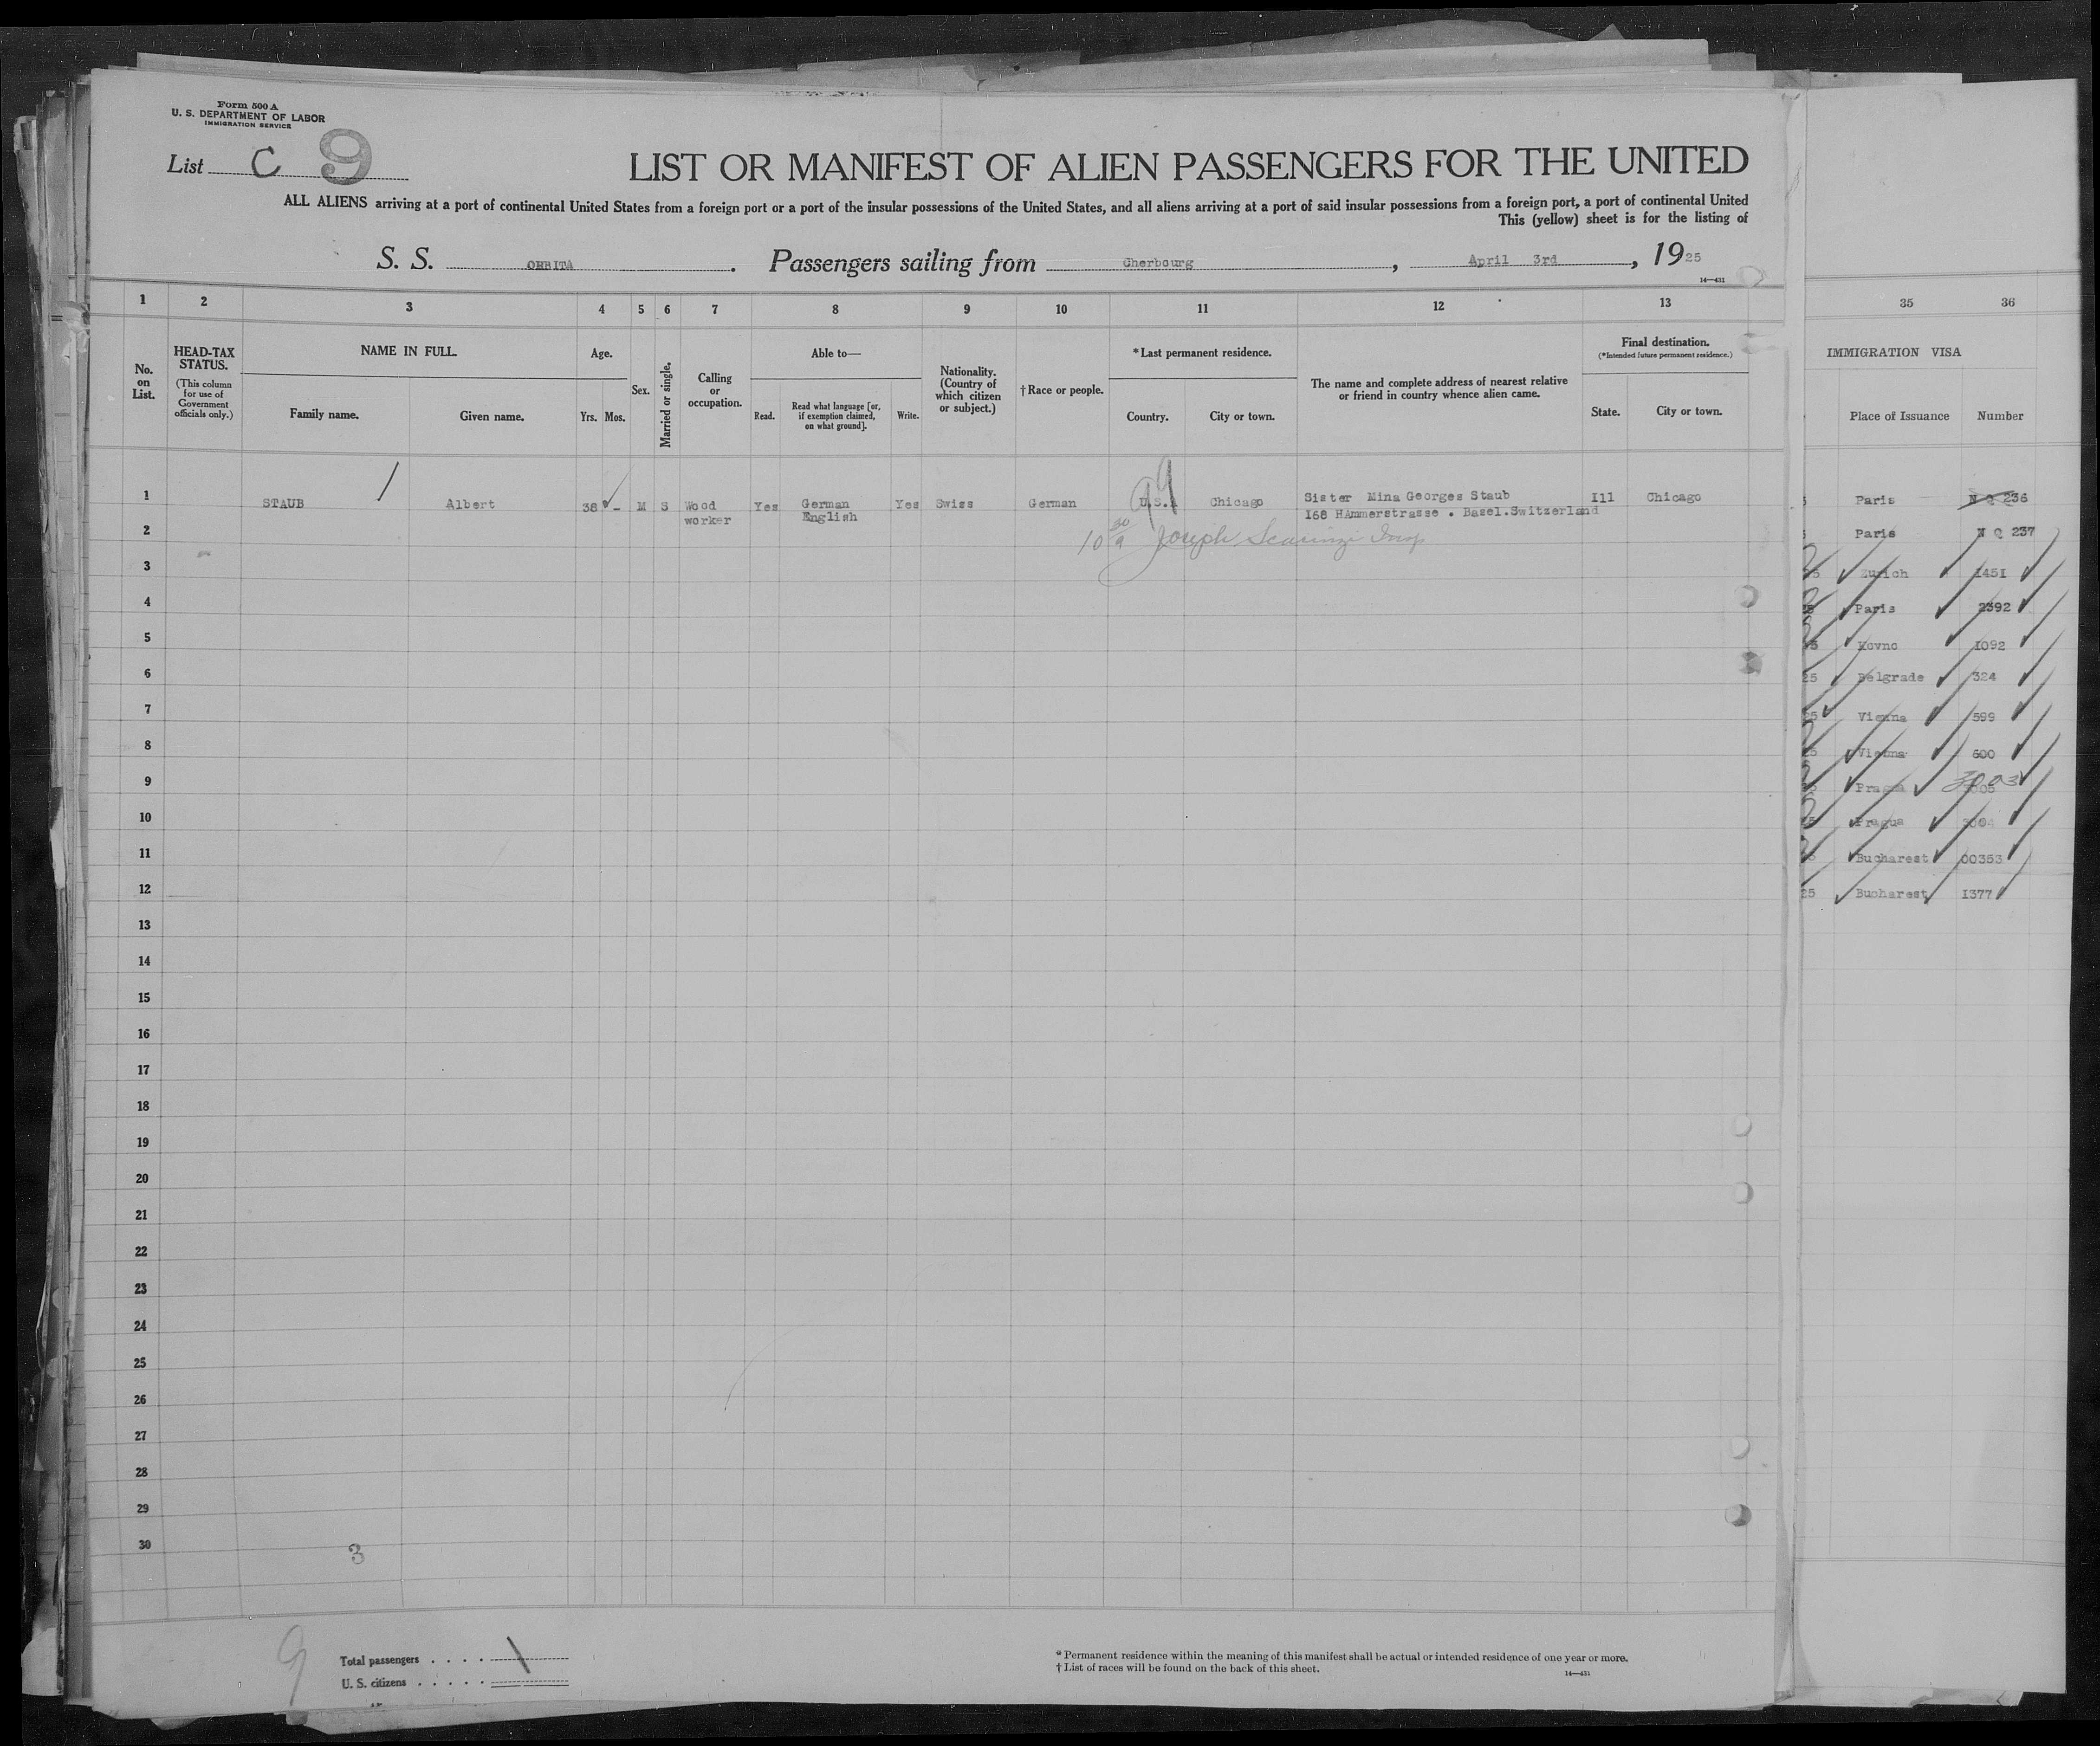 Form 500 A
U. S. DEPARTMENT OF LABOR
IMMIGRATION SERVICE
List C 9
LIST OR MANIFEST OF ALIEN PASSENGERS FOR THE UNITED
ALL ALIENS arriving at a port of continental United States from a foreign port or a port of the insular possessions of the United States, and all aliens arriving at a port of said insular possessions from a foreign port, a port of continental United
This (yellow) sheet is for the listing of
S. S. ORBITA. Passengers sailing from Cherbourg, April 3rd, 1925
14—431
1 2 3 4 5 6 7 8 9 10 11 12 13
No. on List.
HEAD-TAX STATUS.
(This column for use of Government officials only.)
NAME IN FULL.
Family name. Given name.
Age.
Yrs. Mos.
Sex.
Married or single.
Calling or occupation.
Able to—
Read. Read what language [or, if exemption claimed, on what ground]. Write.
Nationality. (Country of which citizen or subject.)
†Race or people.
*Last permanent residence.
Country. City or town.
The name and complete address of nearest relative or friend in country whence alien came.
Final destination.
(*Intended future permanent residence.)
State. City or town.
1 STAUB Albert 38 - M S Wood Yes German Yes Swiss German U.S.A Chicago Sister Mina Georges Staub Ill Chicago
worker English 168 HAmmerstrasse . Basel.Switzerland
2 Joseph Insp
3
4
5
6
7
8
9
10
11
12
13
14
15
16
17
18
19
20
21
22
23
24
25
26
27
28
29
30
3
9
Total passengers . . . .
U. S. citizens . . . . .
* Permanent residence within the meaning of this manifest shall be actual or intended residence of one year or more.
† List of races will be found on the back of this sheet.
14—431
35 36
IMMIGRATION VISA
Place of Issuance Number
Paris N Q 236
Paris N Q 237
Zurich 1451
Paris 2392
Kovno 1092
25 Belgrade 324
25 Vienna 599
Vienna 600
Prague 3003
Prague 3004
Bucharest 00353
25 Bucharest 1377